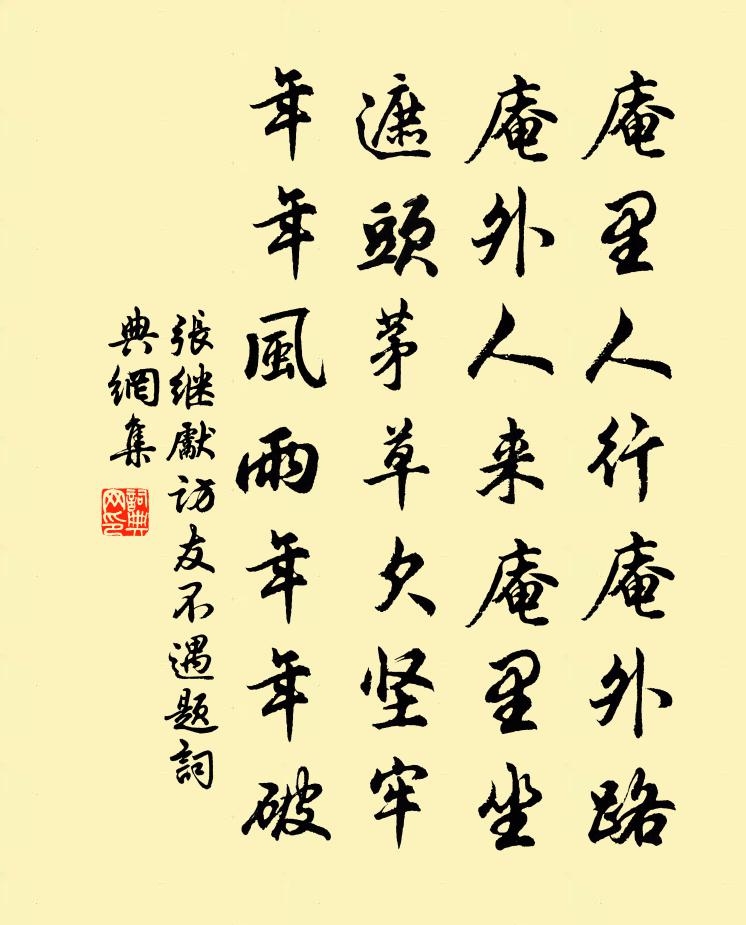 庵里人行庵外路
庵外人来庵里坐
遮頭茅草欠坚牢
年年風雨年年破
張继獻访友不遇题詞
典網集
詞典网印